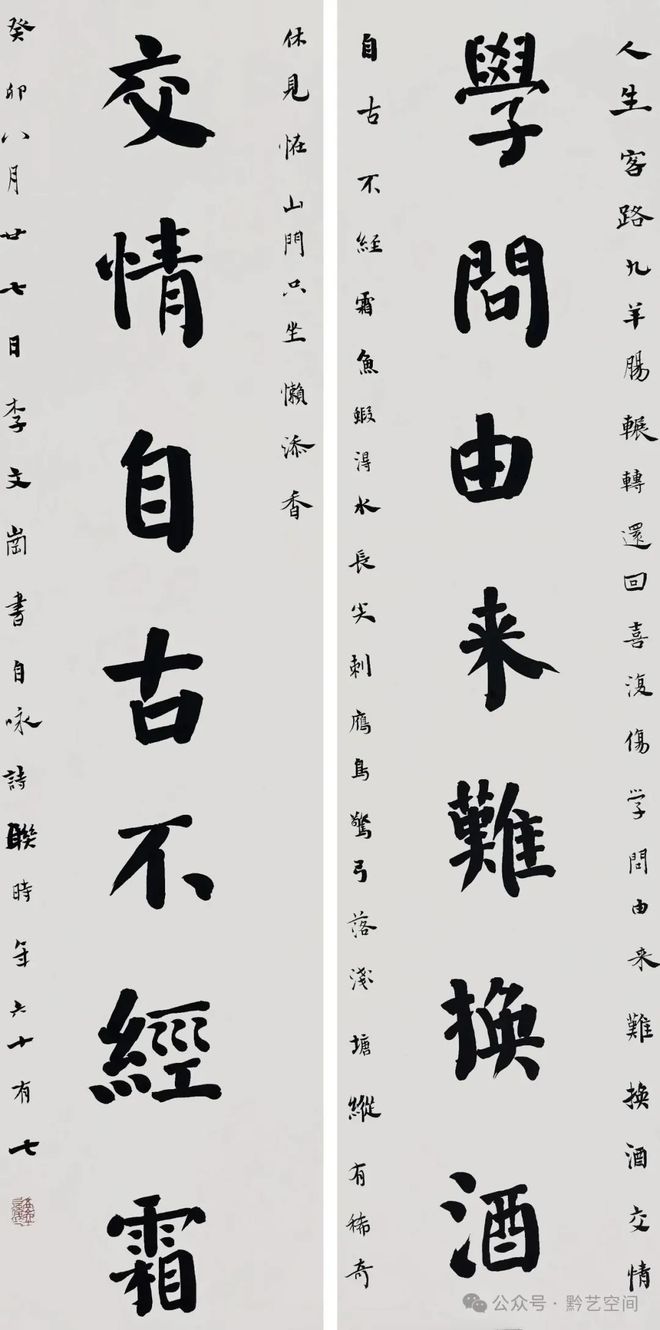 人生客路九羊腸輾轉還回喜復傷学問由来難換酒交情
學問由来難換酒
自古不經霜魚蝦得水長尖刺鴈鳥驚弓落淺塘縱有稀奇
休見怪山門只坐懶添香
交情自古不經霜
癸卯八月廿七日李文崗書自咏詩聯時年六十有七
公众号·黔艺空间